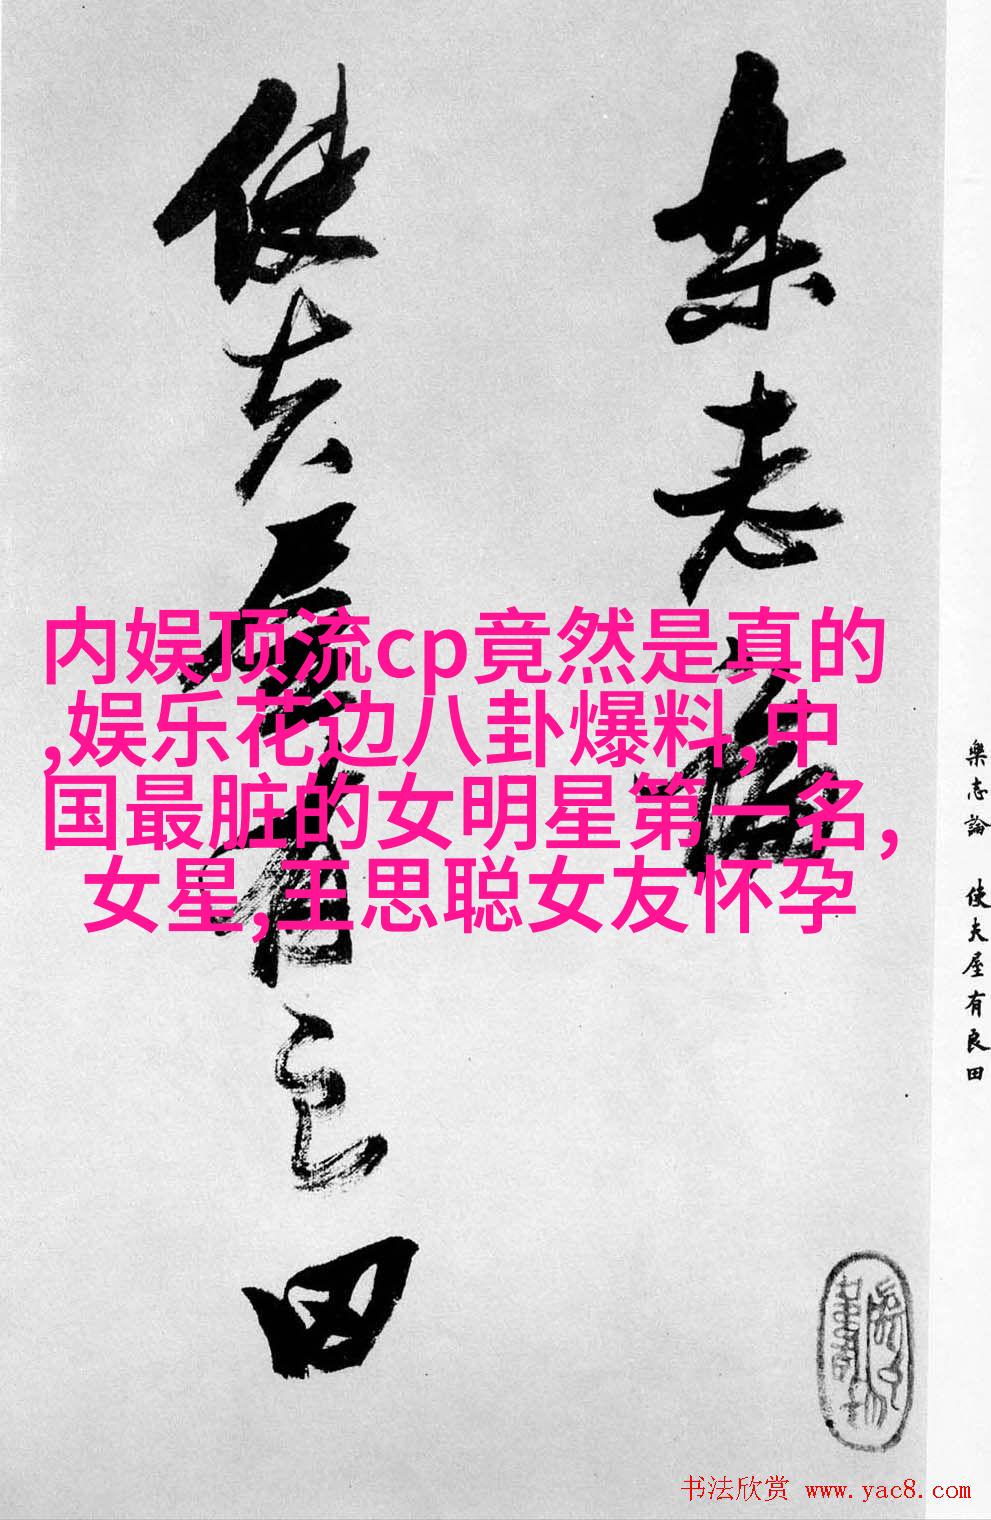 樂志論
使夫屋有良田
内娱顶流cp竟然是真的
,娱乐花边八卦爆料,中
国最脏的女明星第一名,
女星,王思聪女友怀孕
樂志論 使夫屋有良田
书法欣赏 www.yac8.com